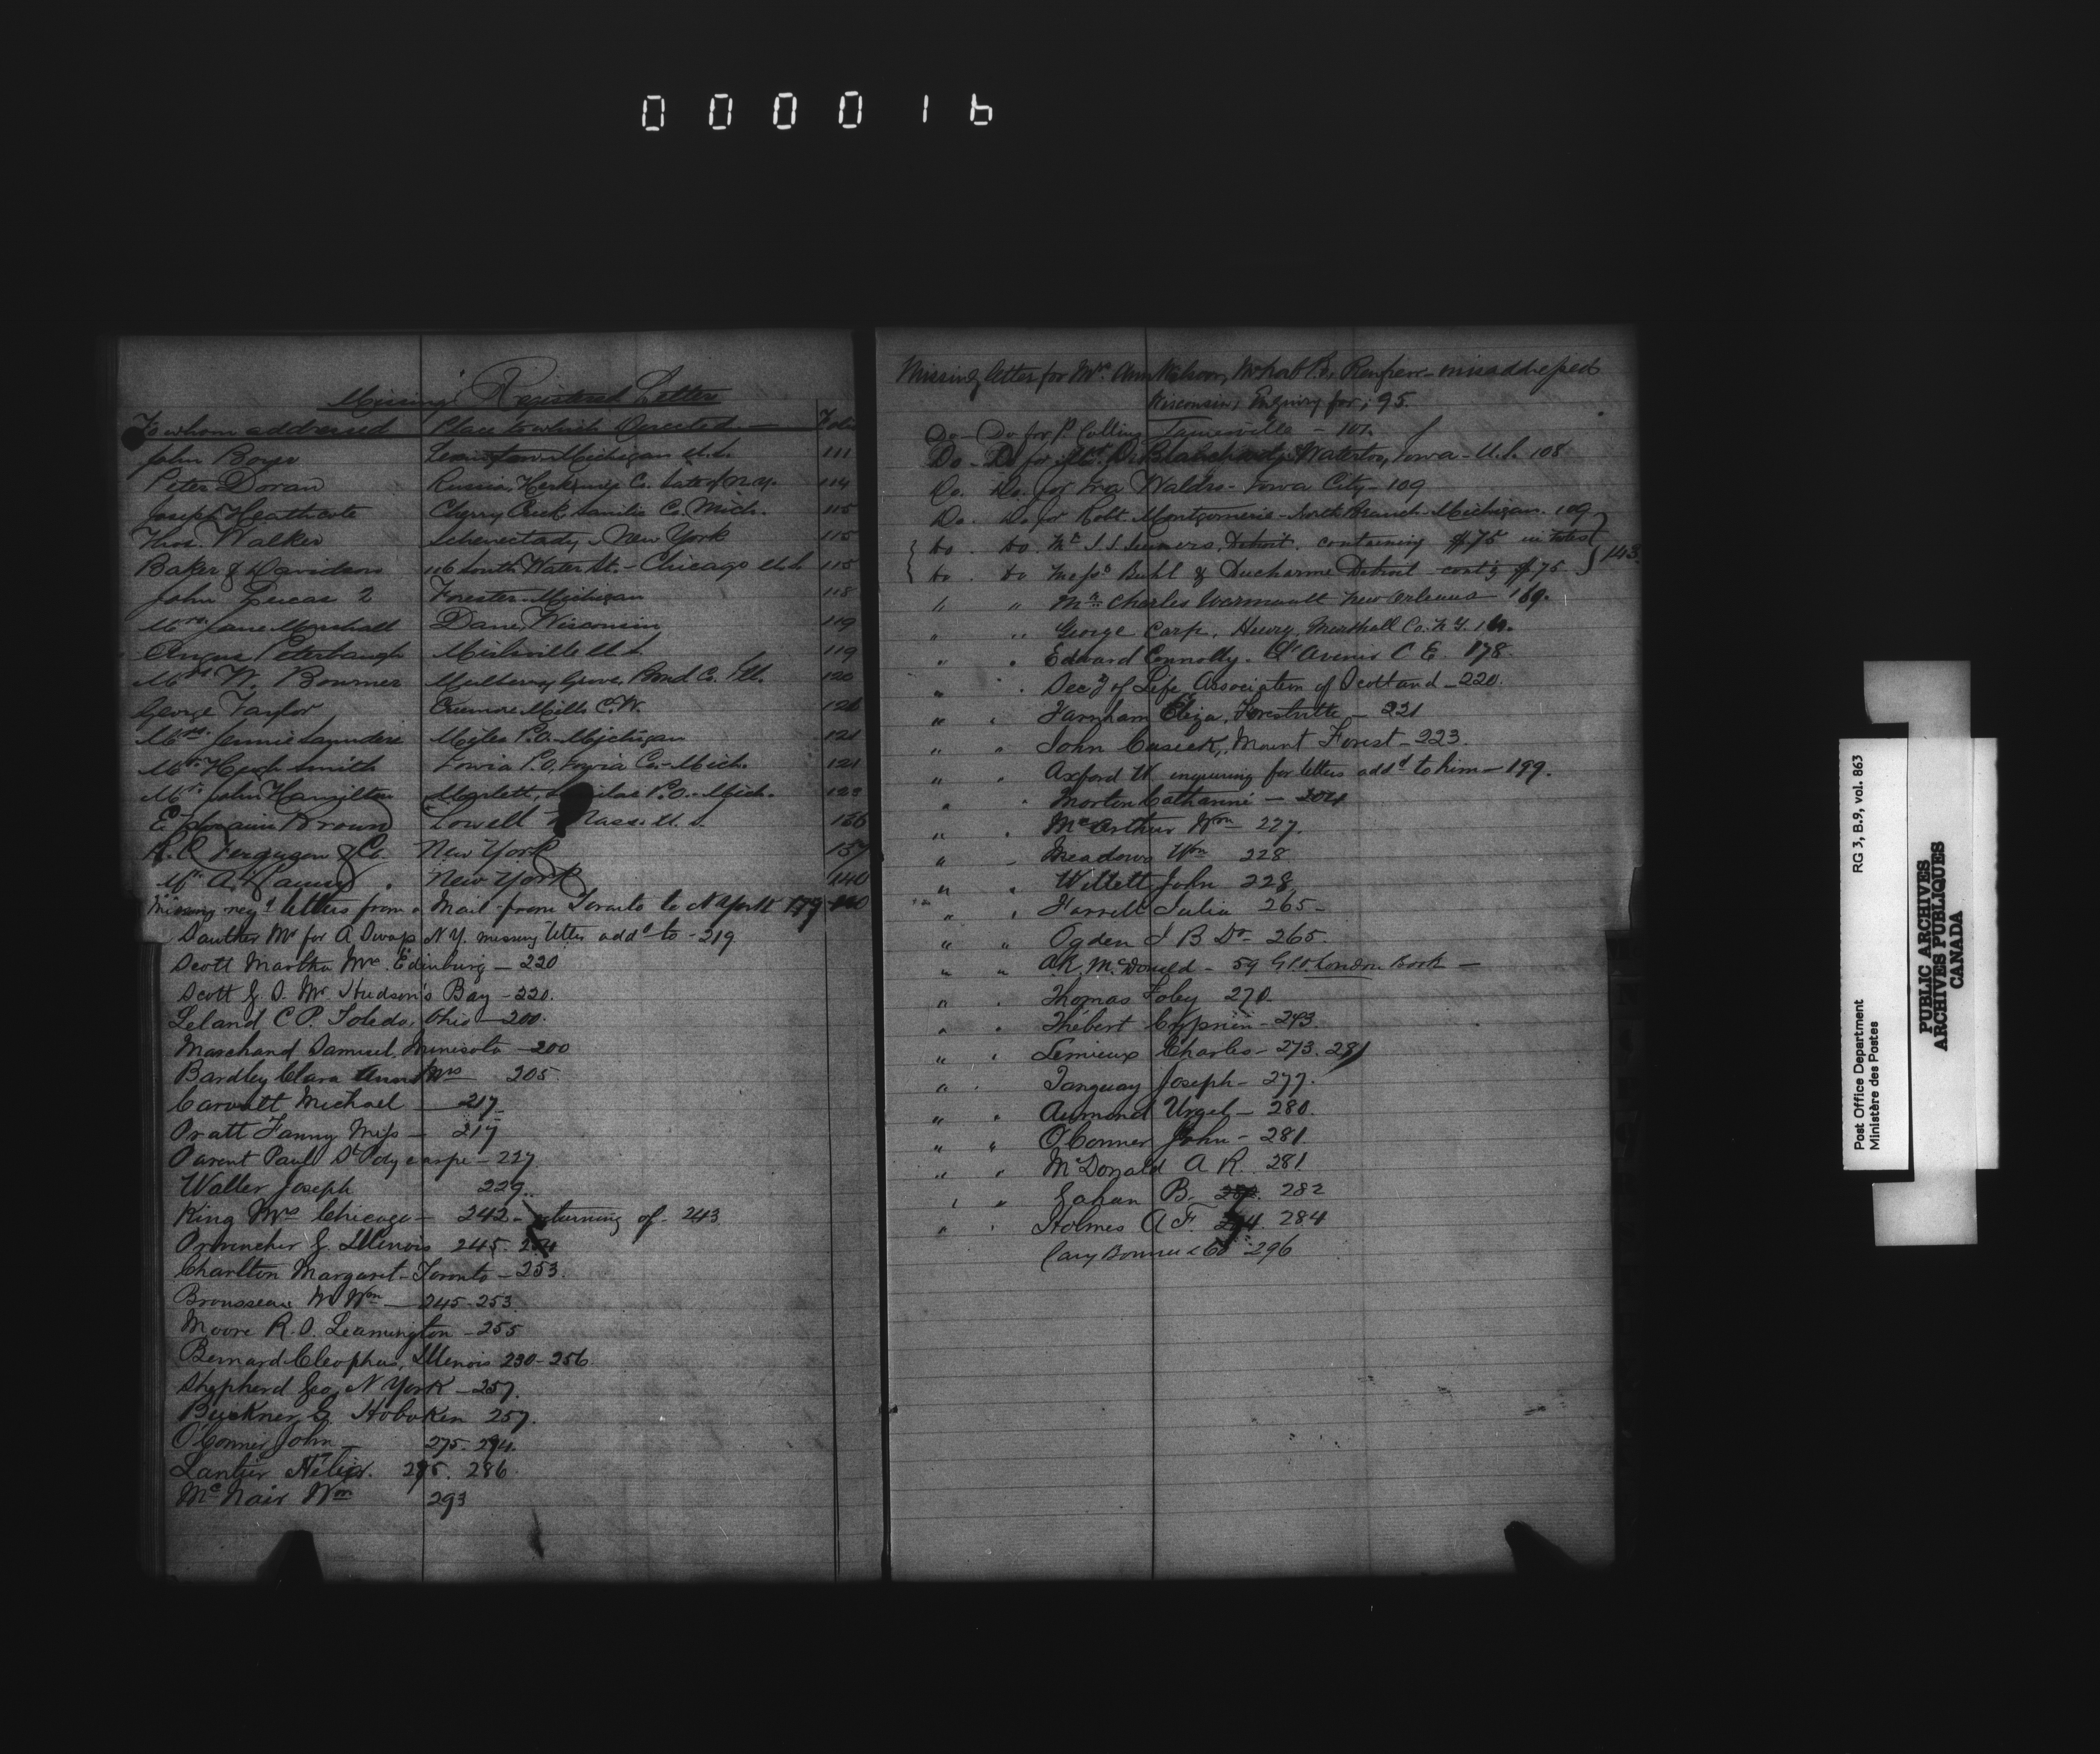 000016
Missing Registered Letter
To whom addressed Place to which Directed Folio
John Boyd Lexington Michigan U.S. 111
Peter Doran Russia, Herkimer C. State of N.Y. 114
Joseph Heathcote Cherry Creek, Sanilac C. Mich. 115
Thos. Walker Schenectady New York 115
Baker & Davidson 116 South Water St. - Chicago U.S. 115
John Lucas 2 Forester Michigan 118
Mrs. Jane Marshall Dane, Wisconsin 119
Angus Peterbaugh U.S. 119
Mrs W. Bowmer Mulberry Grove, Bond Co. Ill. 120
George Taylor Creemore Mills C.W.
Mrs. Jennie Saunders Myles P.O. Michigan 121
Mr. Hugh Smith Iowia P.O. Iowia Co. - Mich. 121
Mr. John Hamilton Marlett, P.O. - Mich. 123
Ephraim Brown Lowell Mass. U.S. 136
A.C. Ferguson & Co. New York 137
Mr. A. New York 140
Missing regd letters from a Mail from Toronto to N York 179
Sauther Mr for A Swap N.Y. missing letter addd to - 219
Scott Martha Mrs. Edinburg - 220
Scott G. S. Mr. Hudson's Bay - 220.
Leland C P. Toledo, Ohio - 200.
Marchand Samuel, Minisota - 200
Bardley Clara Anne Mrs 205.
Michael - 217
Pratt Fanny Miss - 217
Parent Paul St Polycarpe - 227
Walter Joseph 229.
King Mrs Chicago - 242 - returning of - 243
G. Illinois 245.
Charlton Margaret - Toronto - 253.
Brousseau M Wm - 245 - 253.
Moore R. O. Leamington - 255
Bernard Cleophus, Illinois 230 - 256
Shepherd Geo, N York - 257.
Buckner, G. Hoboken 257.
O'Conner John - 275 - 294.
Lantier 286.
McNair Wm 293
Missing letter for Mrs. Ann McNab P.O. Renfrew - misaddressed
Wisconsin; Enquiry for; 95.
Do - Do for P. Collins - 107.
Do - Do for D. Blanchard, Waterloo, Iowa - U.S. 108
Do. Do. for Ira Waldro - Iowa City - 109
Do. Do for Robt. Montgomerie - North Branch Michigan. 109
do. do Mr. S. S. Summers, Detroit. containing $75 in notes
do. do Messrs Buhl & Ducharme Detroit contg $75 } 143
" " Mr. Charles Warmoult New Orleans - 169.
" " George Carp. Henry, Marshall Co.
" " Edward Connolly. L'Avenir C E. 178
" " Secy of Life Association of Scotland - 220.
" " Farnham Eliza, Forestville - 221
" " John Cusick, Mount Forest - 223.
" " Axford W. inquiring for letters addd to him - 199.
" " Morton Catharine - 204
" " McArthur Wm - 227.
" " Meadows Wm 228
" " Willett John 228
" " Farrell Julia 265 -
" " Ogden J B Dr - 265.
" " A.R. McDonald - 59 G.P.O. London Book -
" " Thomas Foley 270
" " Thébert Cyprien - 243
" " Lemieux Charles - 273. 281
" " Tanguay Joseph - 277.
" " Aumond Urgel - 280.
" " O'Conner John - 281.
" " McDonald A R. 281
" " Gahan B. 282
" " Holmes A F. 284
Cary Bonner & Co 296
Post Office Department RG 3, B.9, vol. 863
Ministère des Postes
PUBLIC ARCHIVES
ARCHIVES PUBLIQUES
CANADA